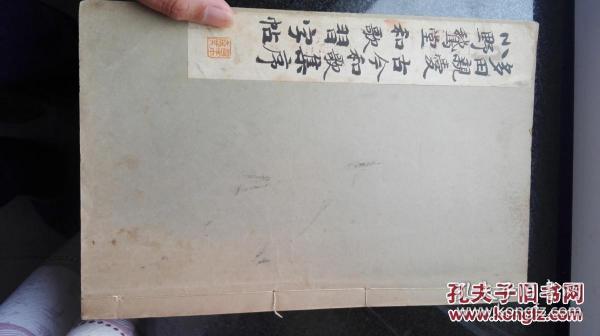 多田親愛 古今和歌集序
小野鵞堂 和歌習字帖
孔夫子旧书网
www.kongfz.com